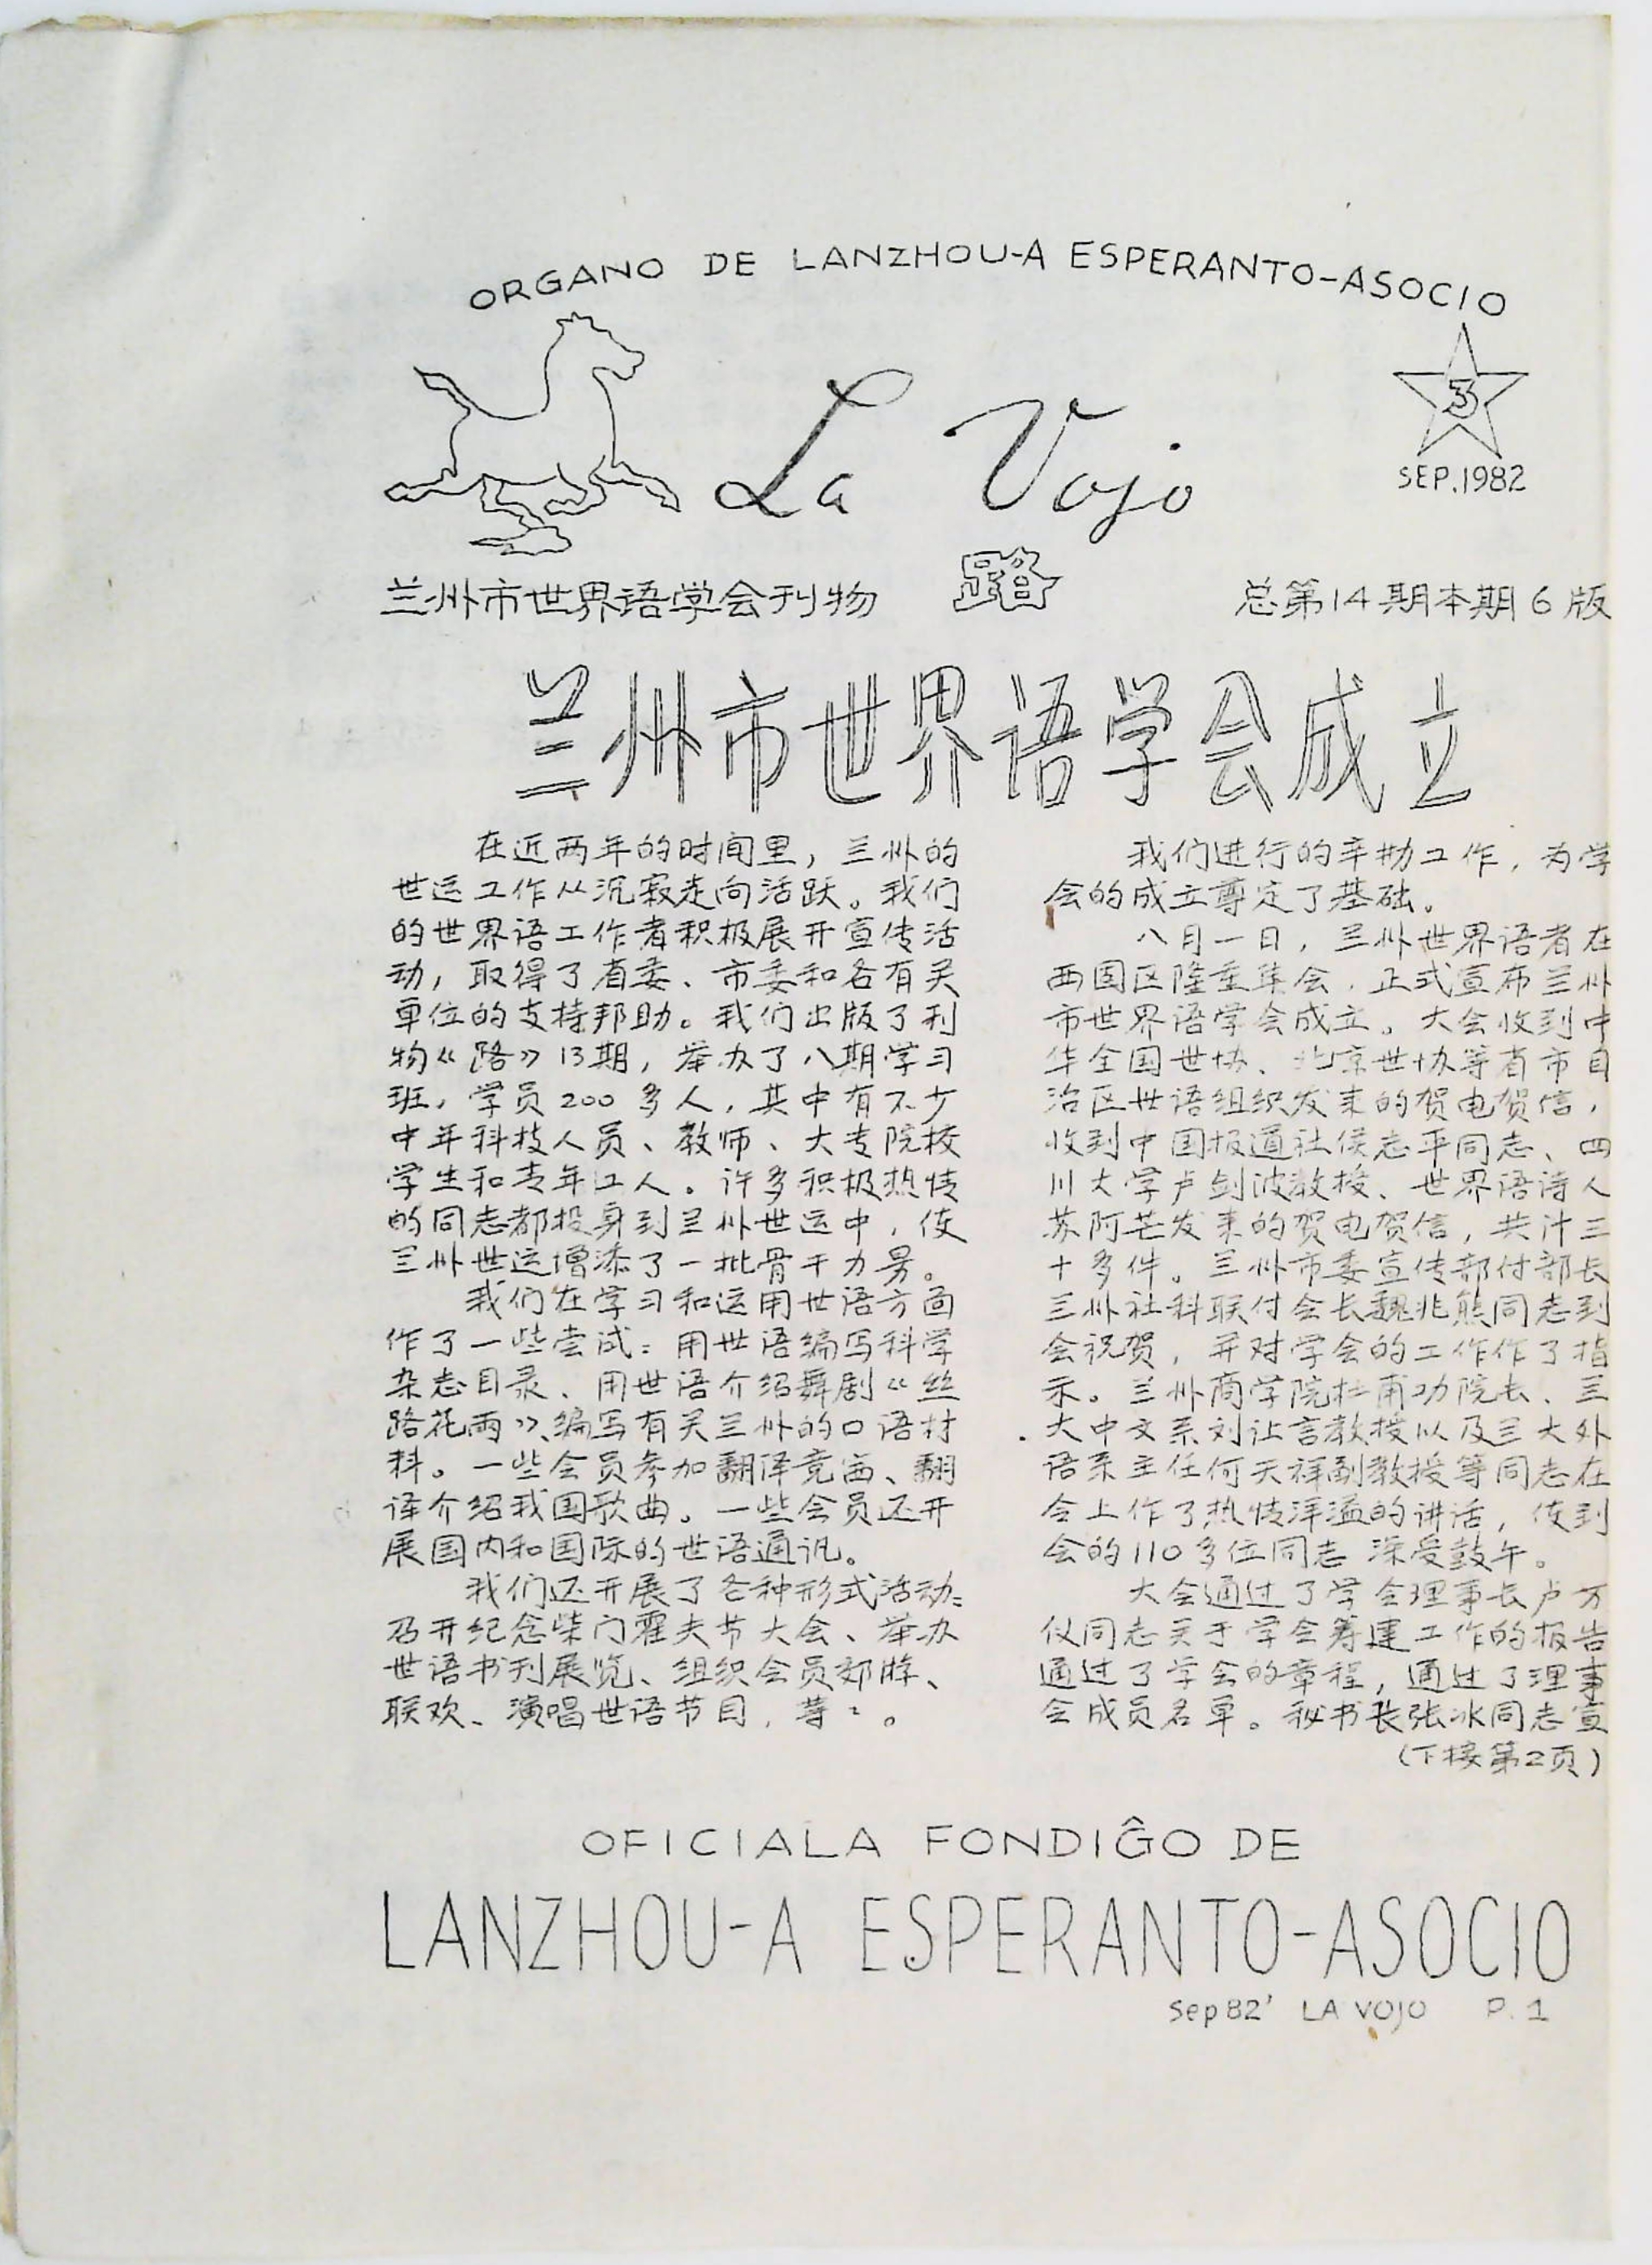 ORGANO DE LANZHOU-A ESPERANTO-ASOCIO
La Vojo
3
SEP.1982
路
兰州市世界语学会刊物
总第14期本期6版
兰州市世界语学会成立
在近两年的时间里，兰州的
世运工作从沉寂走向活跃。我们
的世界语工作者积极展开宣传活
动，取得了省委、市委和各有关
单位的支持邦助。我们出版了刊
物《路》13期，举办了八期学习
班，学员200多人，其中有不少
中年科技人员、教师、大专院校
学生和青年工人。许多积极热情
的同志都投身到兰州世运中，使
兰州世运增添了一批骨干力量。
我们在学习和运用世语方面
作了一些尝试：用世语编写科学
杂志目录、用世语介绍舞剧《丝
路花雨》、编写有关兰州的口语材
料。一些会员参加翻译竞赛、翻
译介绍我国歌曲。一些会员还开
展国内和国际的世语通讯。
我们还开展了各种形式活动：
召开纪念柴门霍夫节大会、举办
世语书刊展览、组织会员郊游、
联欢、演唱世语节目，等：。
我们进行的辛勤工作，为学
会的成立尊定了基础。
八月一日，兰州世界语者在
西固区隆重集会，正式宣布兰州
市世界语学会成立。大会收到中
华全国世协、北京世协等省市自
治区世语组织发来的贺电贺信，
收到中国报道社侯志平同志、四
川大学卢剑波教授、世界语诗人
苏阿芒发来的贺电贺信，共计三
十多件。兰州市委宣传部付部长
兰州社科联付会长魏兆熊同志到
会祝贺，并对学会的工作作了指
示。兰州商学院杜甫功院长、兰
大中文系刘让言教授以及兰大外
语系主任何天祥副教授等同志在
会上作了热情洋溢的讲话，使到
会的110多位同志深受鼓午。
大会通过了学会理事长卢万
仪同志关于学会筹建工作的报告
通过了学会的章程，通过了理事
会成员名单。秘书长张冰同志宣
（下接第2页）
OFICIALA FONDIĜO DE
LANZHOU-A ESPERANTO-ASOCIO
Sep 82' LA VOJO P. 1